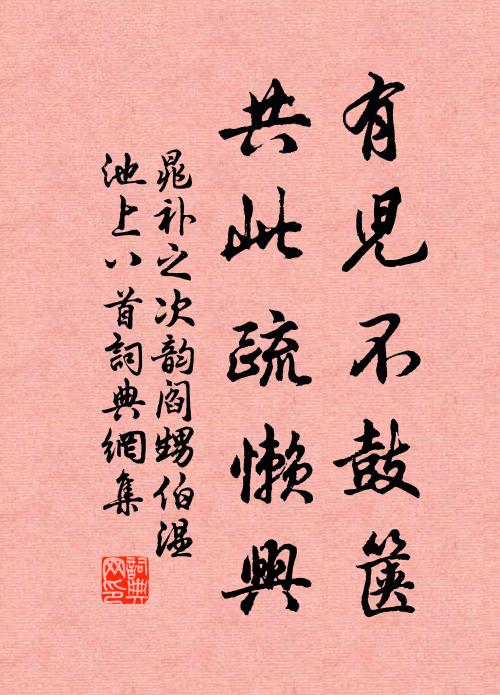 有児不鼓箧
共此疏懒興
晁补之次韵阎甥伯温
池上八首詞典網集
詞典网印